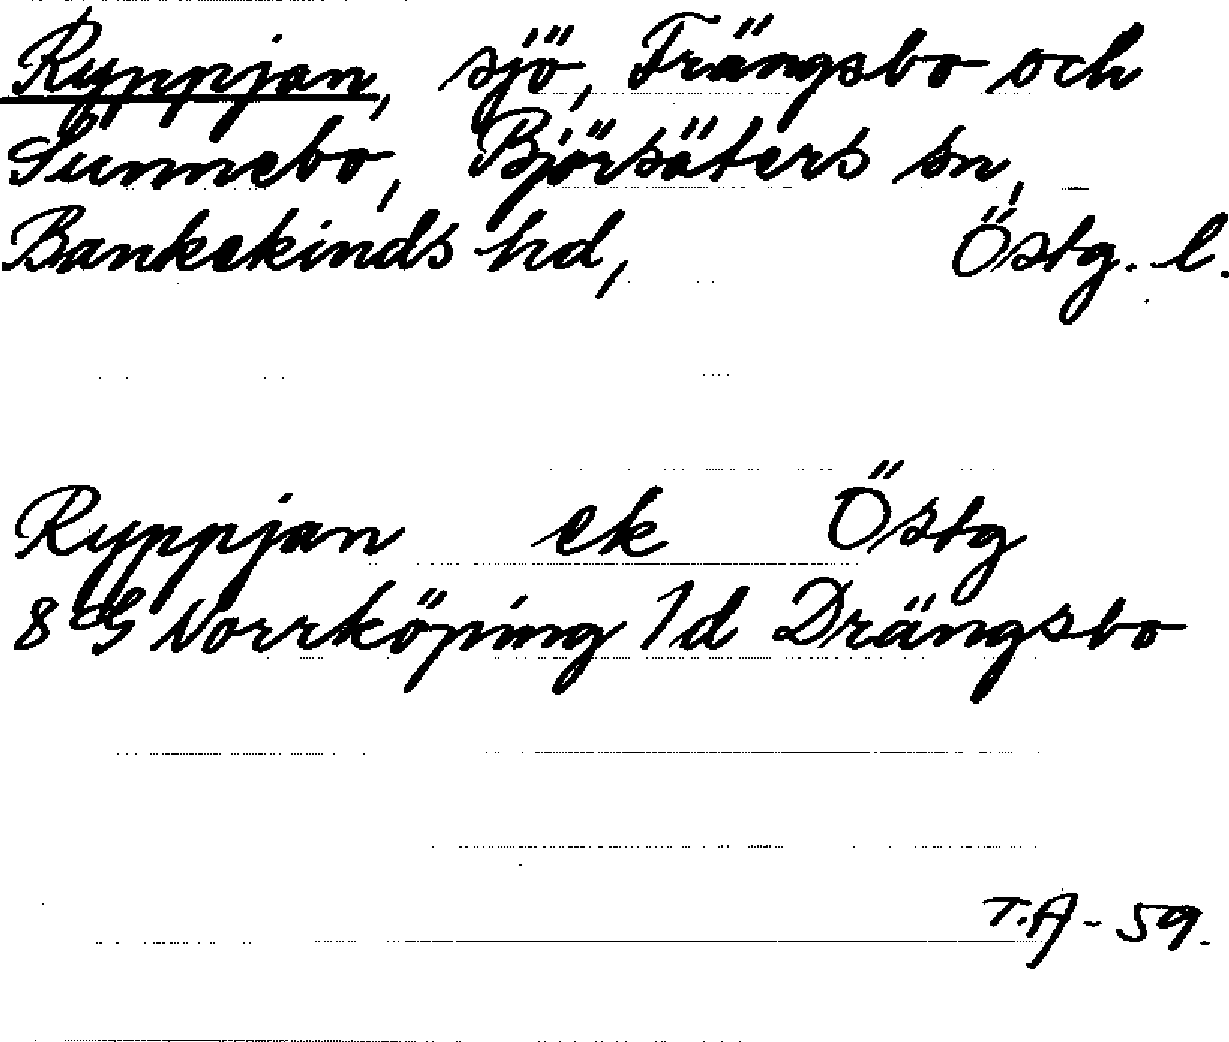 Ryppjan, sjö, Frängsbo och
Sunnebo, Björsäters sn,
Bankekinds hd, Östg. l.
Ryppjan ek Östg
8 G Norrköping 1d Drängsbo
T.A - 59.